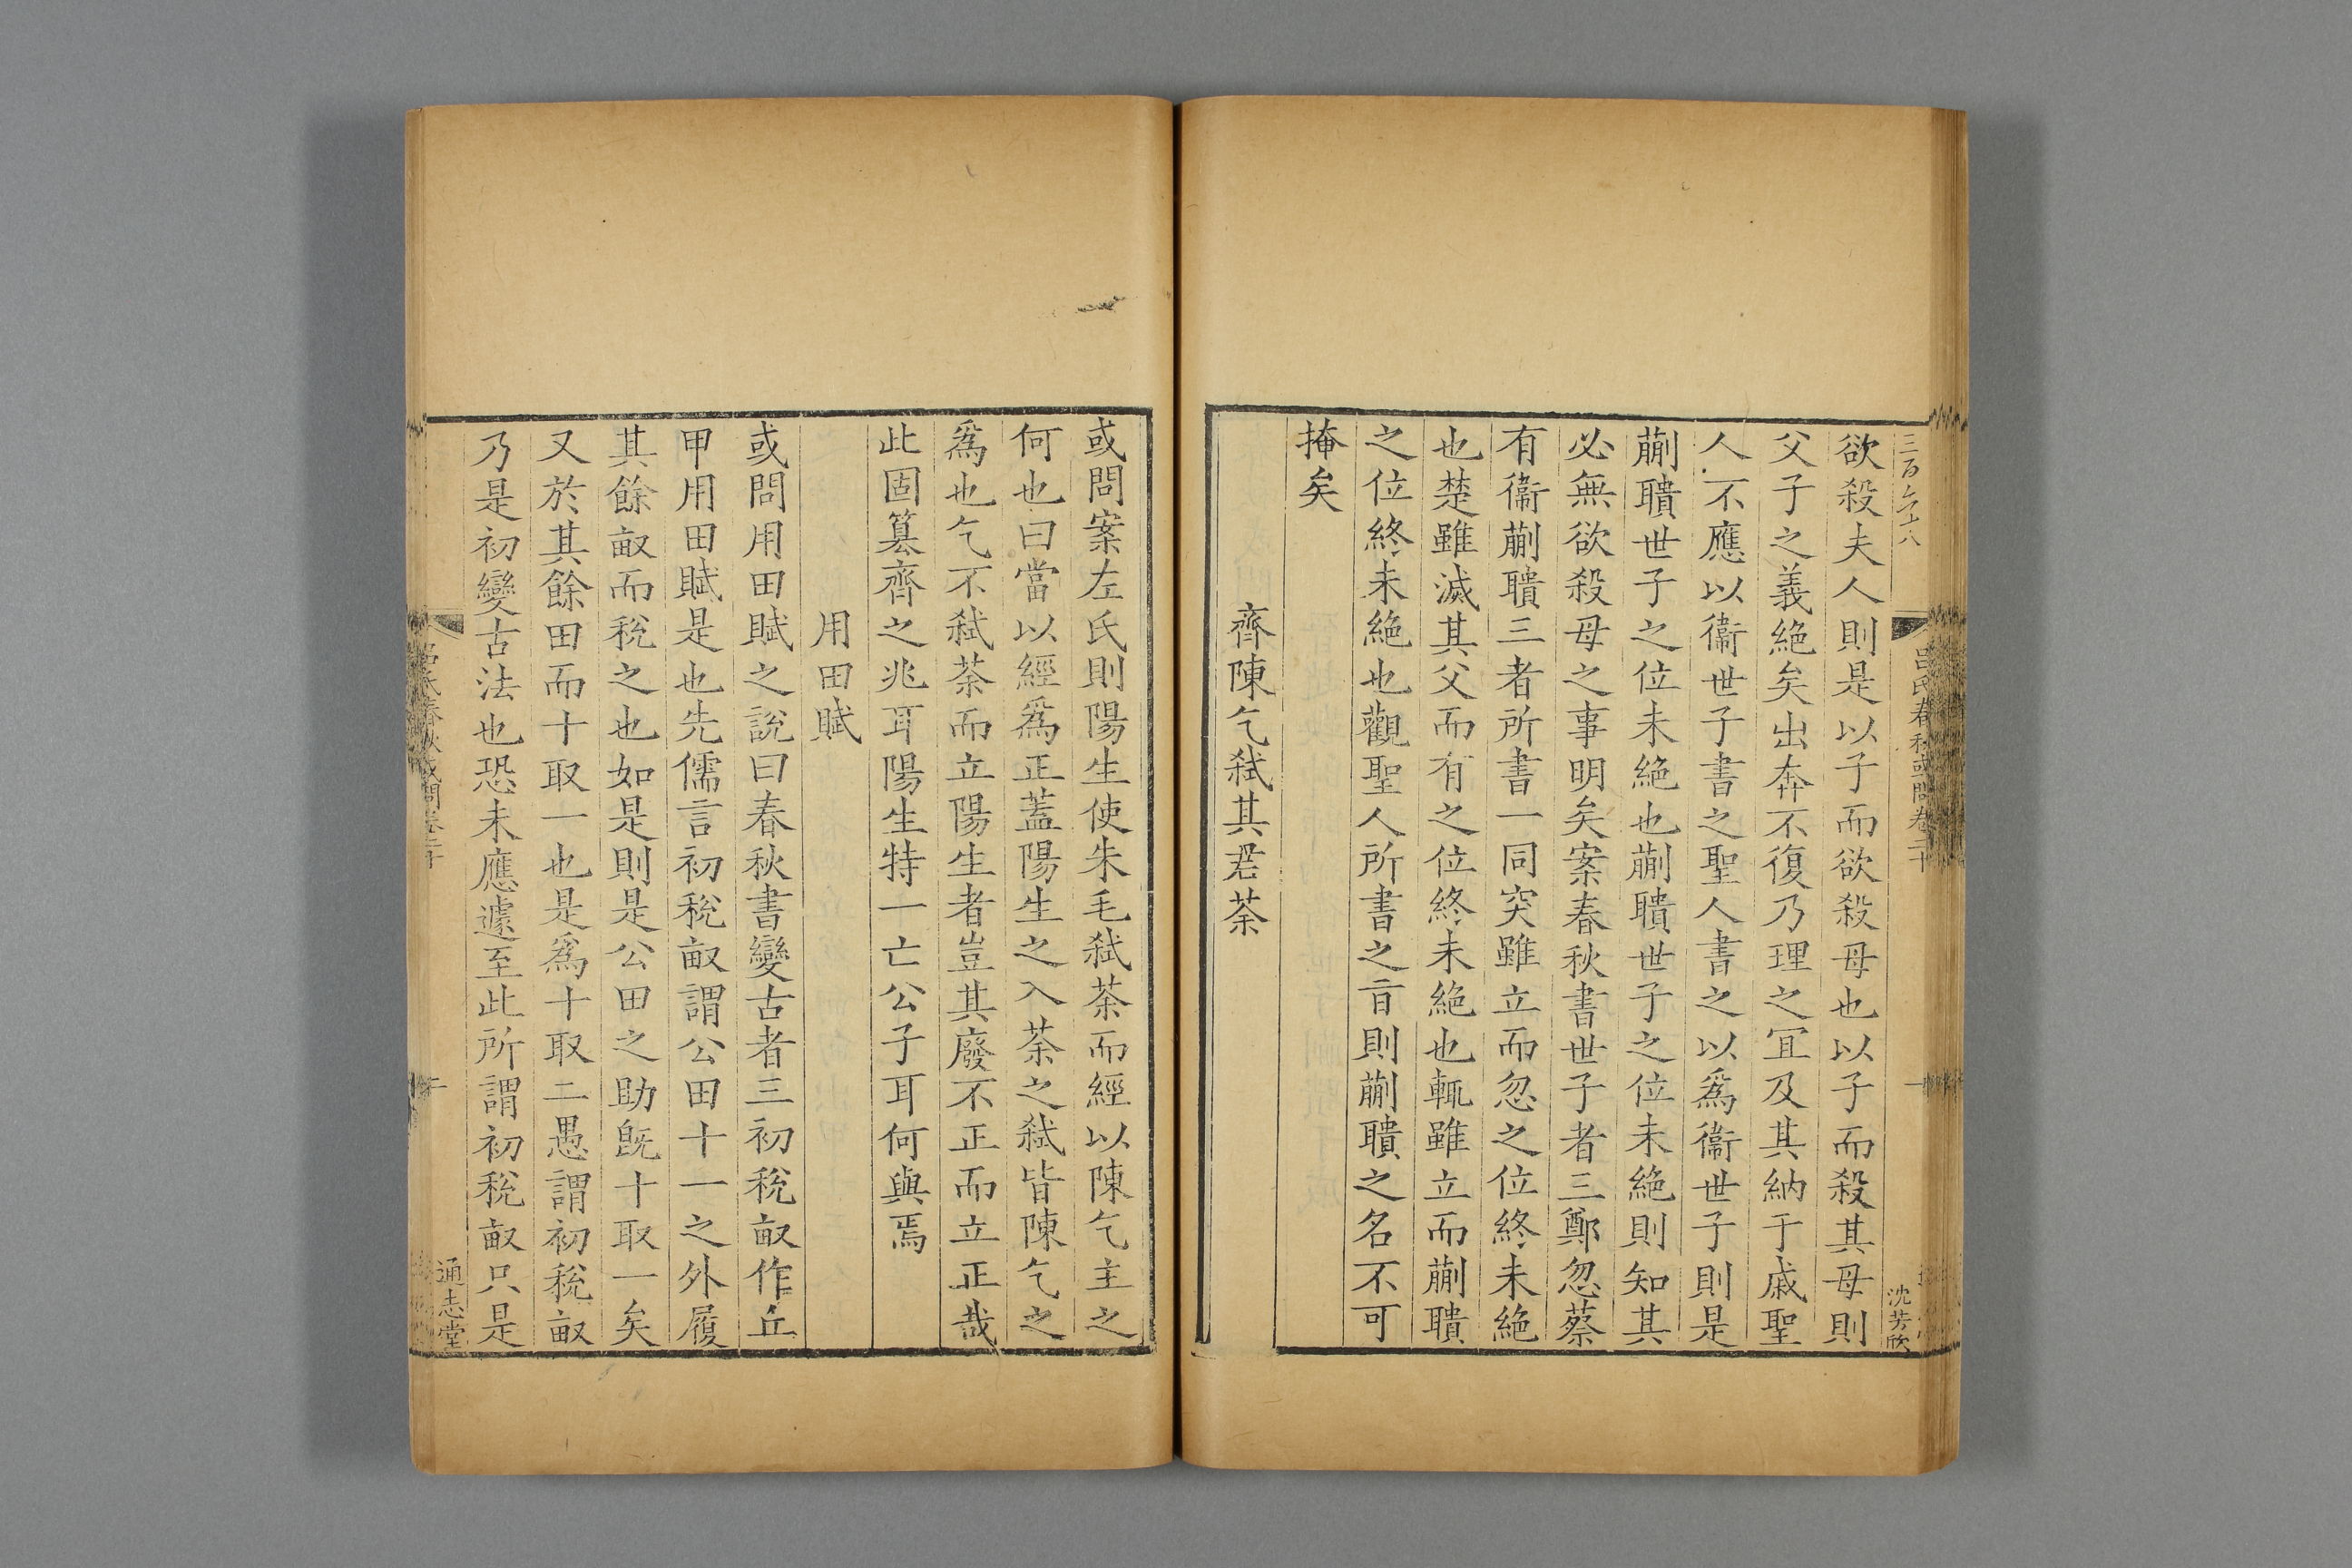 三百六十八
呂氏春秋或問卷二十
沈芳欣
欲殺夫人則是以子而欲殺母也以子而殺其母則
父子之義絶矣出奔不復乃理之冝及其納于戚聖
人不應以衞世子書之聖人書之以爲衞世子則是
蒯聵世子之位未絶也蒯聵世子之位未絶則知其
必無欲殺母之事明矣案春秋書世子者三鄭忽蔡
有衞蒯聵三者所書一同突雖立而忽之位終未絶
也楚雖滅其父而有之位終未絶也輒雖立而蒯聵
之位終未絶也觀聖人所書之㫖則蒯聵之名不可
掩矣
齊陳乞弑其君荼
或問案左氏則陽生使朱毛弑荼而經以陳乞主之
何也曰當以經爲正蓋陽生之入荼之弑皆陳乞之
爲也乞不弑荼而立陽生者豈其廢不正而立正哉
此固簒齊之兆耳陽生特一亡公子耳何與焉
用田賦
或問用田賦之說曰春秋書變古者三初稅畝作丘
甲用田賦是也先儒言初稅畝謂公田十一之外履
其餘畝而稅之也如是則是公田之助旣十取一矣
又於其餘田而十取一也是爲十取二愚謂初稅畝
乃是初變古法也恐未應遽至此所謂初稅畝只是
呂氏春秋或問卷二十
通志堂